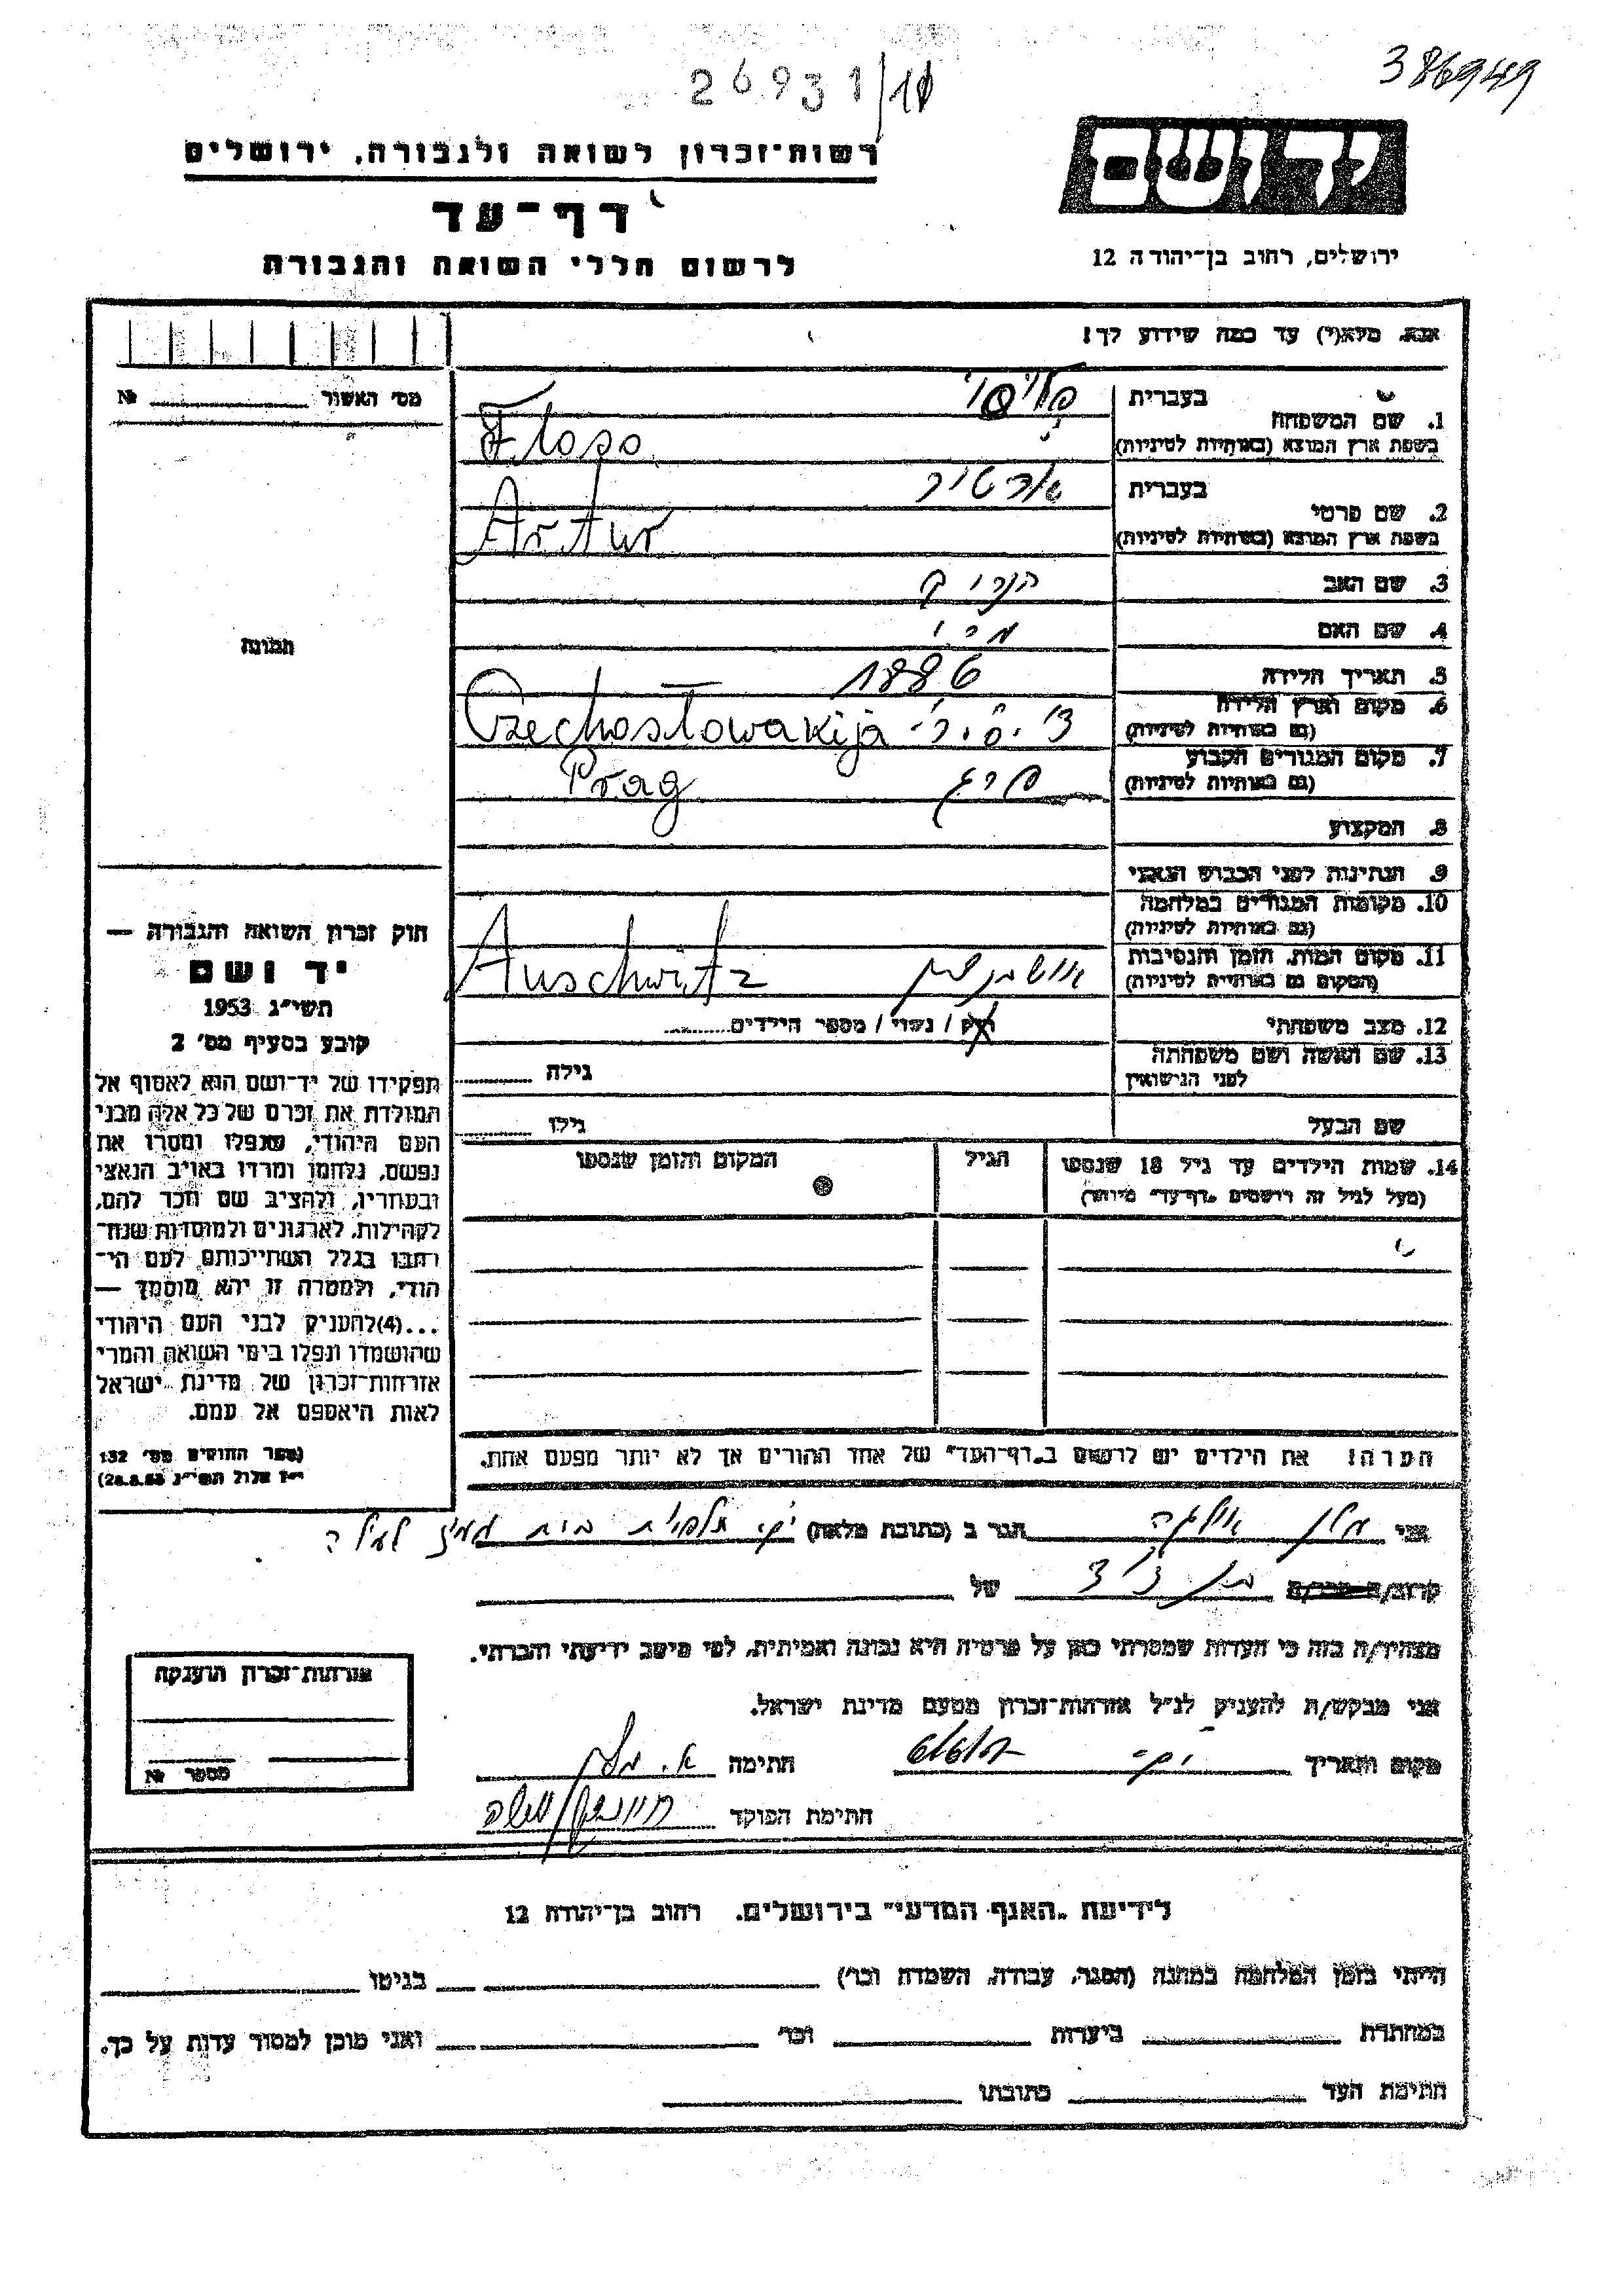 386949
26931/11
יד ושם
ירושלים, רחוב בן־יהודה 12
רשות־זכרון לשואה ולגבורה, ירושלים
דף־עד
לרשום חללי השואה והגבורה
אנא, מלא(י) עד כמה שידוע לך!
מס' האשור № 
1. שם המשפחה
בעברית
בשפת ארץ המוצא (באותיות לטיניות)
Floso
2. שם פרטי
בעברית ארטור
בשפת ארץ המוצא (באותיות לטיניות)
Artur
3. שם האב הנריק
4. שם האם מרי
5. תאריך הלידה 1886
6. מקום וארץ הלידה
(גם באותיות לטיניות)
Czechosłowakija
7. מקום המגורים הקבוע
(גם באותיות לטיניות)
פרג Prag
8. המקצוע
9. הנתינות לפני הכבוש הנאצי
10. מקומות המגורים במלחמה
(גם באותיות לטיניות)
11. מקום המות, הזמן והנסיבות
(המקום גם באותיות לטיניות)
Auschwitz
12. מצב משפחתי
רוק / נשוי / מספר הילדים
13. שם האשה ושם משפחתה
לפני הנישואין
גילה
שם הבעל
גילו
14. שמות הילדים עד גיל 18 שנספו
(מעל לגיל זה רושמים "דף־עד" מיוחד)
הגיל
המקום והזמן שנספו
הערה: את הילדים יש לרשום ב"דף־העד" של אחד ההורים אך לא יותר מפעם אחת.
תמונה
חוק זכרון השואה והגבורה —
יד ושם
תשי"ג 1953
קובע בסעיף מס' 2
תפקידו של יד־ושם הוא לאסוף אל
המולדת את זכרם של כל אלה מבני
העם היהודי, שנפלו ומסרו את
נפשם, נלחמו ומרדו באויב הנאצי
ובעוזריו, ולהציב שם וזכר להם,
לקהילות, לארגונים ולמוסדות שנח־
רבו בגלל השתייכותם לעם הי־
הודי, ולמטרה זו יהא מוסמך —
...(4) להעניק לבני העם היהודי
שהושמדו ונפלו בימי השואה והמרי
אזרחות־זכרון של מדינת ישראל
לאות היאספם אל עמם.
(ספר החוקים מס' 132
י"ז אלול תשי"ג 28.8.53)
אני הגר ב (כתובת מלאה) תלפיות בית
קרוב/ה מכר/ה בן דוד של
מצהיר/ה בזה כי העדות שמסרתי כאן על פרטיה היא נכונה ואמיתית, לפי מיטב ידיעתי והכרתי.
אני מבקש/ת להעניק לנ"ל אזרחות־זכרון מטעם מדינת ישראל.
מקום ותאריך חתימה
חתימת הפוקד
אזרחות־זכרון הוענקה
מספר №
לידיעת "האגף המדעי" בירושלים, רחוב בן־יהודה 12
הייתי בזמן המלחמה במחנה (הסגר, עבודה, השמדה וכו') בגיטו
במחתרת ביערות וכו' ואני מוכן למסור עדות על כך.
חתימת העד כתובתו